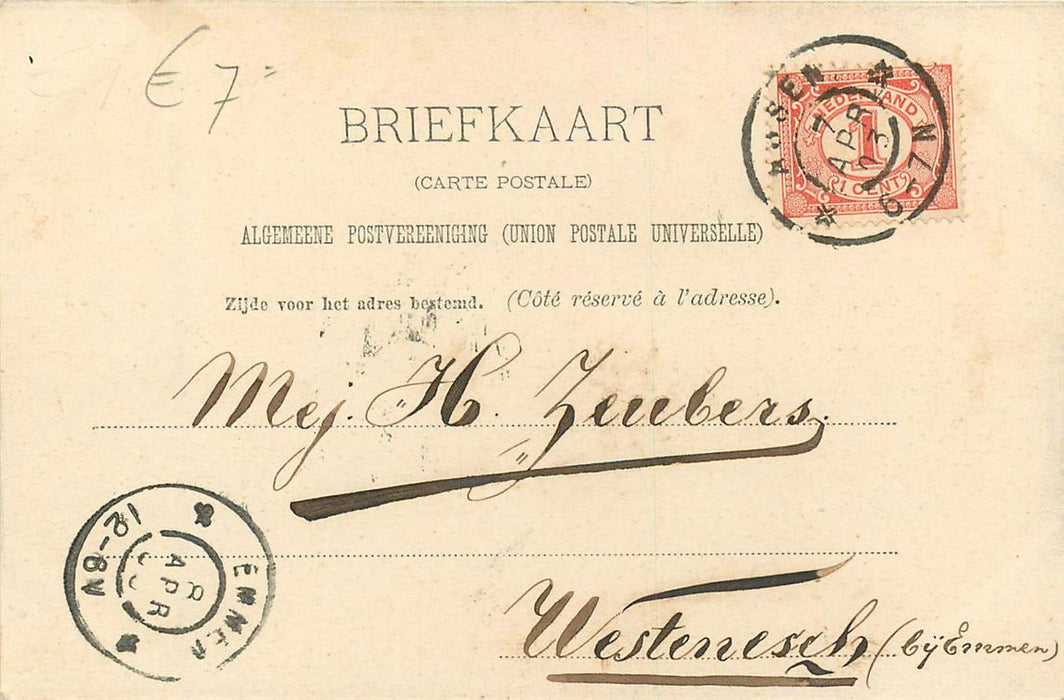 € 7=
BRIEFKAART
(CARTE POSTALE)
ALGEMEENE POSTVEREENIGING (UNION POSTALE UNIVERSELLE)
Zijde voor het adres bestemd. (Côté réservé à l'adresse).
NEDERLAND
1
1 CENT
7 APR 03
6-7N
Mej. H. Zeubers.
EMMEN
8 APR
12-6V
Westenesch (bij Emmen)